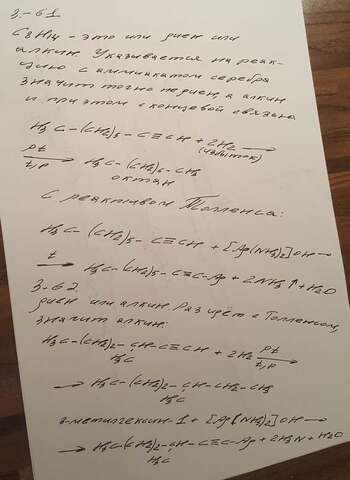 3.-61
C8H14 - это или диен или
алкин. Указывается на реак-
цию с аммиакатом серебра
значит точно не диен, а алкин
и при этом с концевой связью
H3C-(CH2)5-C≡CH + 2H2 →
(избыток)
Pt
t,p → H3C-(CH2)6-CH3
октан
С реактивом Толленса:
H3C-(CH2)5-C≡CH + [Ag(NH3)2]OH →
t → H3C-(CH2)5-C≡C-Ag + 2NH3↑ + H2O
3.-62
диен или алкин. Раз идёт с Толленсом,
значит алкин:
H3C-(CH2)2-CH-C≡CH + 2H2 Pt t,p →
H3C
→ H3C-(CH2)2-CH-CH2-CH3
H3C
3-метилгексин-1 + [Ag(NH3)2]OH →
→ H3C-(CH2)2-CH-C≡C-Ag + 2H3N + H2O
H3C